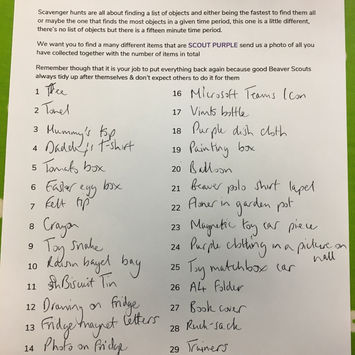 Scavenger hunts are all about finding a list of objects and either being the fastest to find them all
or maybe the one that finds the most objects in a given time period, this one is a little different,
there's no list of objects but there is a fifteen minute time period.
We want you to find a many different items that are SCOUT PURPLE send us a photo of all you
have collected together with the number of items in total
Remember though that it is your job to put everything back again because good Beaver Scouts
always tidy up after themselves & don't expect others to do it for them
1 Tree
2 Towel
3 Mummy's top
4 Daddy's T-shirt
5 Tomato box
6 Easter egg box
7 Felt tip
8 Crayon
9 Toy snake
10 Raisin bagel bag
11 Biscuit Tin
12 Drawing on fridge
13 Fridge magnet letters
14 Photo on fridge
16 Microsoft Teams Icon
17 Vimto bottle
18 Purple dish cloth
19 Painting box
20 Balloon
21 Beaver polo shirt lapel
22 Flower in garden pot
23 Magnetic toy car piece
24 Purple clothing in a picture on
wall
25 Toy matchbox car
26 A4 Folder
27 Book cover
28 Ruck-sack
29 Trainers